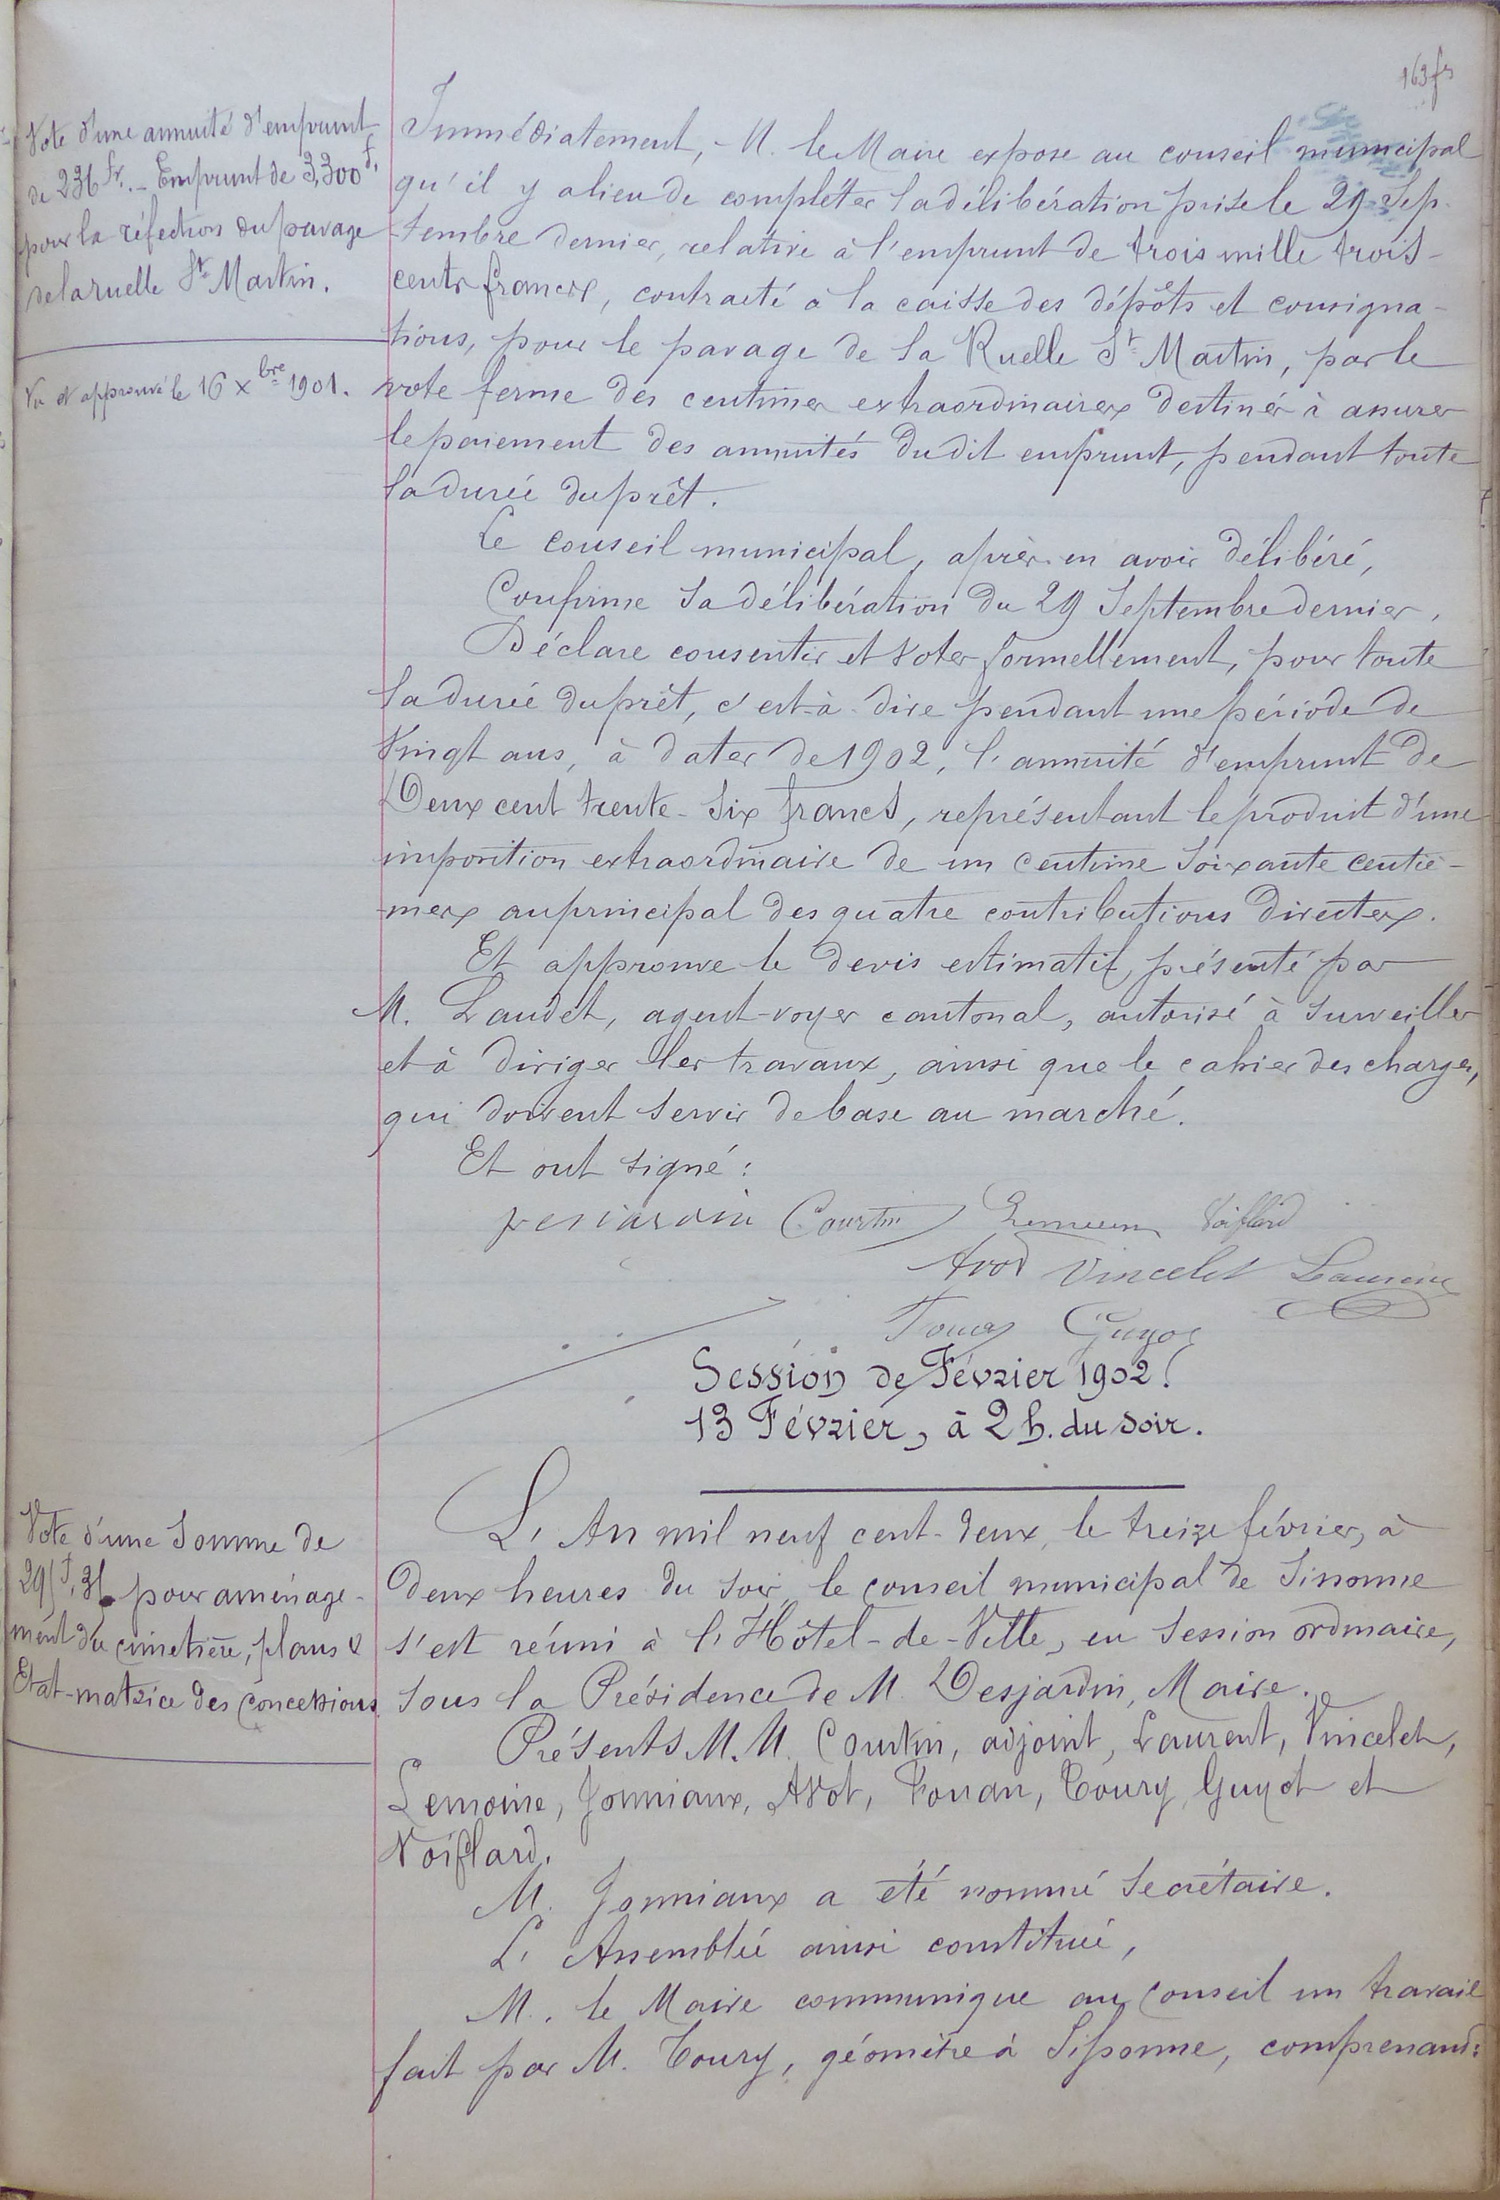 Vote d'une annuité d'emprunt
de 236 fr. – Emprunt de 3,300 f.
pour la réfection du pavage
de la ruelle St Martin.
Vu et approuvé le 16 Xbre 1901.
Immédiatement, M. le Maire expose au conseil municipal
qu'il y a lieu de compléter la délibération prise le 29 Sep-
tembre dernier, relative à l'emprunt de trois mille trois-
cents francs, contracté à la caisse des dépôts et consigna-
tions, pour le pavage de la Ruelle St Martin, par le
vote ferme des centimes extraordinaires destinés à assurer
le paiement des annuités dudit emprunt, pendant toute
la durée du prêt.
Le conseil municipal, après en avoir délibéré,
Confirme sa délibération du 29 Septembre dernier.
Déclare consentir et voter formellement, pour toute
la durée du prêt, c'est-à-dire pendant une période de
Vingt ans, à dater de 1902, l'annuité d'emprunt de
Deux cent trente-six francs, représentant le produit d'une
imposition extraordinaire de un centime soixante centiè-
-mes au principal des quatre contributions directes.
Et approuve le devis estimatif, présenté par
M. Laudet, agent-voyer cantonal, autorisé à surveiller
et à diriger les travaux, ainsi que le cahier des charges,
qui doivent servir de base au marché.
Et ont signé :
Desjardin Courtin Voiflard
Avot Vincelet
Toury Guyot
Session de Février 1902.
13 Février, à 2 h. du soir.
Vote d'une somme de
pour aménage-
ment du cimetière, plans &
Etat-matrice des concessions
L'An mil neuf cent-deux, le treize février, à
Deux heures du soir, le conseil municipal de Sissonne
s'est réuni à l'Hôtel-de-Ville, en session ordinaire,
sous la Présidence de M. Desjardin, Maire.
Présents M.M. Courtin, adjoint, Laurent, Vincelet,
Lemoine, Jonniaux, Avot, Fouan, Toury, Guyot et
Voiflard.
M. Jonniaux a été nommé Secrétaire.
L'Assemblée ainsi constituée,
M. le Maire communique au Conseil un travail
fait par M. Toury, géomètre à Sissonne, comprenant :